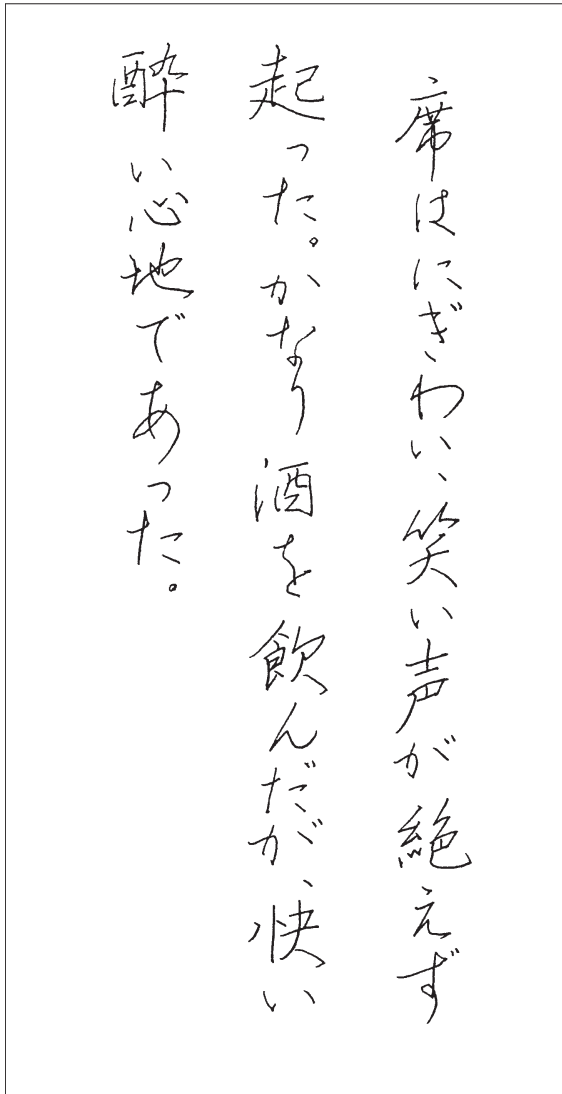 席はにぎわい、笑い声が絶えず
起った。かなり酒を飲んだが、快い
酔い心地であった。